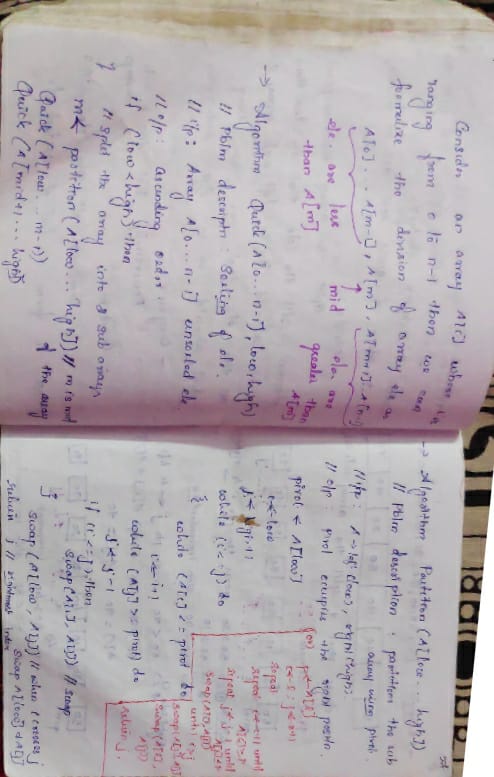 Consider an array A[i] where i is
ranging from 0 to n-1 then we can
formulize the division of array ele as
A[0] . . . A[m-1], A[m], A[m+1]..A[n-1]
ele. are less mid ele. are
than A[m] greater than
A[m]
→ Algorithm Quick (A[0...n-1], low, high)
// Pblm descriptn: Sorting of ele.
// i/p: Array A[0...n-1] unsorted ele.
// o/p: ascending order
if (low < high) then
// split the array into 2 sub arrays
m ← partition (A[low... high]) // m is mid
of the array
Quick (A[low... m-1])
Quick (A[mid+1 ... high])
→ Algorithm Partition (A[low... high])
// Pblm description: partitions the sub
array using pivot.
// i/p: A → left (low), right (high)
// o/p: Pivot occupies the right positn.
pivot ← A[low]
i ← low
j ← high+1
while (i <= j) do
{
while (A[i] <= pivot) do
i ← i+1
while (A[j] >= pivot) do
j ← j-1
if (i <= j) then
swap (A[i], A[j]) // swap
}
swap (A[low], A[j]) // when i crosses j
swap A[low] & A[j]
return j // rightmost index
(or)
repeat
repeat i ← i+1 until
repeat j ← j-1 until
swap (A[i], A[j])
until i ≥ j
swap (A[i], A[j])
swap (A[l], A[j])
return j.